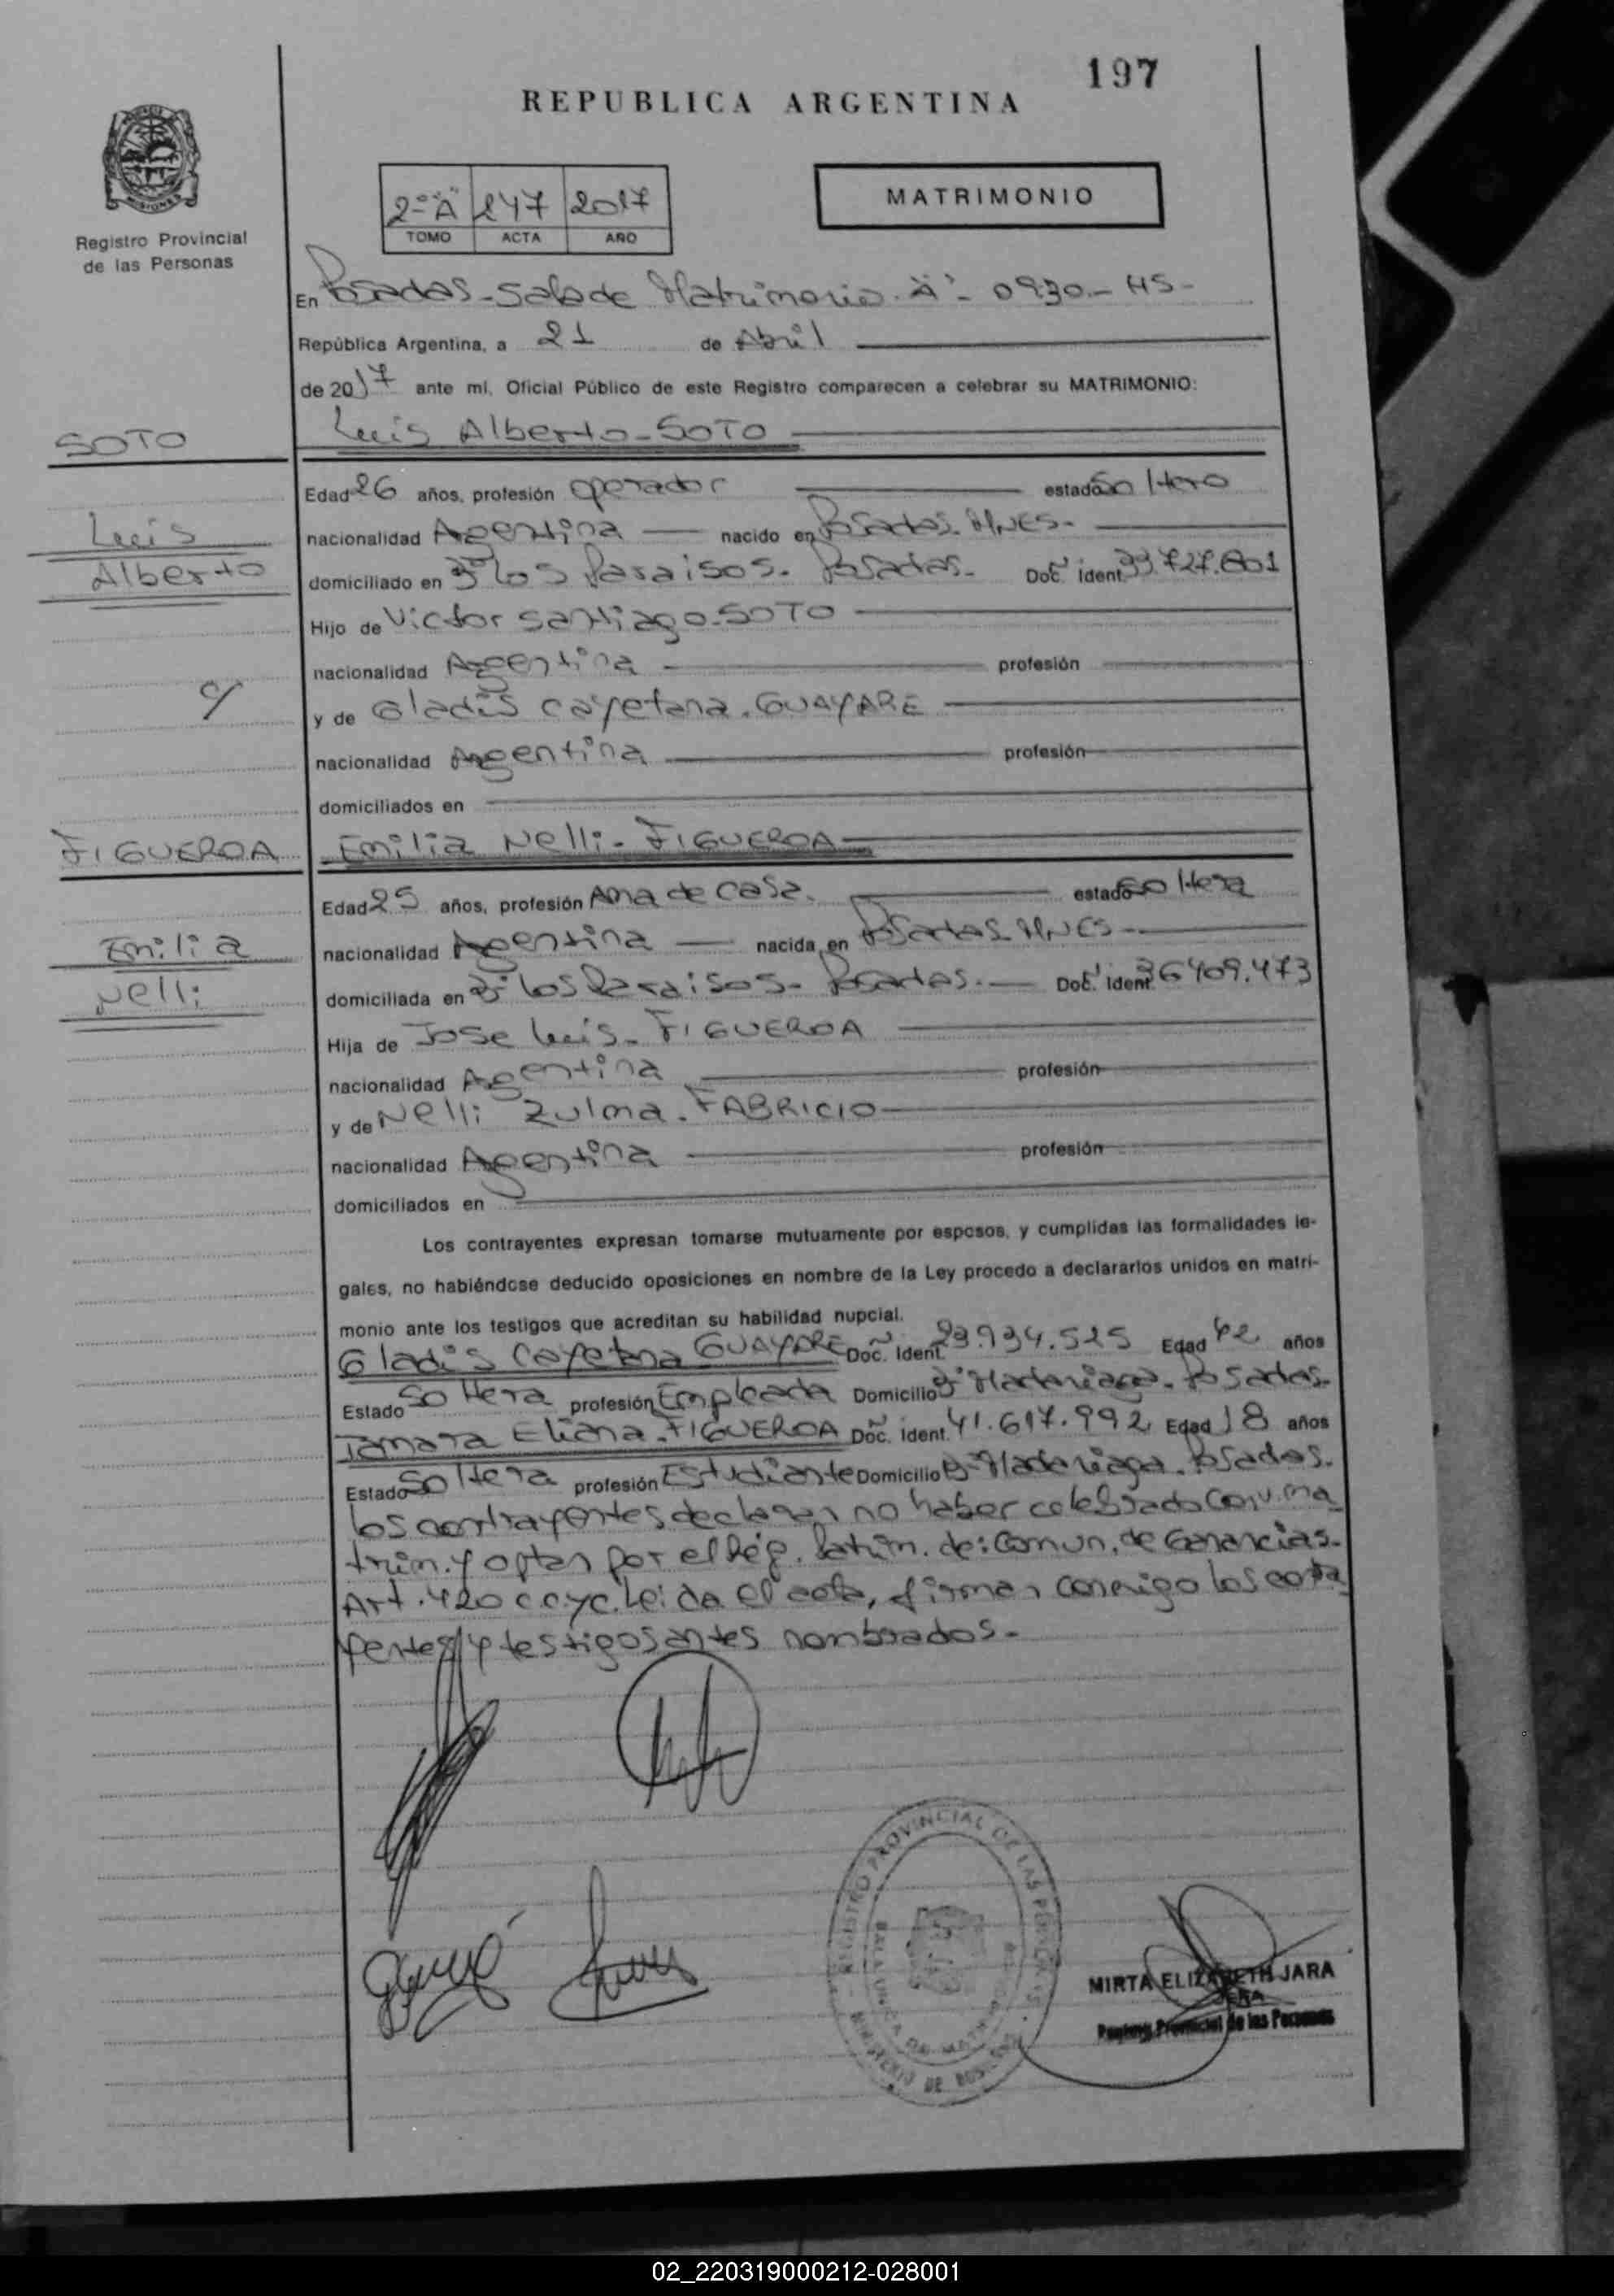 197
REPUBLICA ARGENTINA
MISIONES
Registro Provincial
de las Personas
2º "A" 247 2017
TOMO ACTA AÑO
MATRIMONIO
En Posadas-Sala de Matrimonio "A"- 0930.- HS-
República Argentina, a 21 de Abril
de 2017 ante mi, Oficial Público de este Registro comparecen a celebrar su MATRIMONIO:
SOTO
Luis Alberto-SOTO
Edad 26 años, profesión operador estado soltero
Luis
nacionalidad Argentina nacido en Posadas. MNES-
Alberto
domiciliado en Bº los Paraisos. Posadas- Doc. Ident. 33.727.801
Hijo de Victor Santiago-SOTO
nacionalidad Argentina profesión
c/
y de Gladis Cayetana. GUAYARE
nacionalidad Argentina profesión
domiciliados en
FIGUEROA
Emilia Nelli- FIGUEROA
Edad 25 años, profesión Ama de casa. estado soltera
Emilia
nacionalidad Argentina nacida en Posadas MNES-
Nelli
domiciliada en Bº los Paraisos- Posadas.- Doc. Ident. 36409.473
Hija de Jose Luis- FIGUEROA
nacionalidad Argentina profesión
y de Nelli Zulma. FABRICIO
nacionalidad Argentina profesión
domiciliados en
Los contrayentes expresan tomarse mutuamente por esposos, y cumplidas las formalidades le-
gales, no habiéndose deducido oposiciones en nombre de la Ley procedo a declararlos unidos en matri-
monio ante los testigos que acreditan su habilidad nupcial.
Gladis Cayetana GUAYARE Doc. Ident. 23.934.525 Edad 42 años
Estado Soltera profesión Empleada Domicilio Bº Madariaga. Posadas-
Tamara Eliana-FIGUEROA Doc. Ident. 41.617.992 Edad 18 años
Estado Soltera profesión Estudiante Domicilio Bº Madariaga. Posados.
los contrayentes declaran no haber celebrado Conv. ma
trim. y optan por el Rég. Patrim. de: Comun. de Ganancias-
Art. 420 CCyC. Leida el acta, firman conmigo los contra
yentes y testigos antes nombrados-
REGISTRO PROVINCIAL DE LAS PERSONAS
MIRTA ELIZABETH JARA
JEFA
Registro Provincial de las Personas
02_220319000212-028001